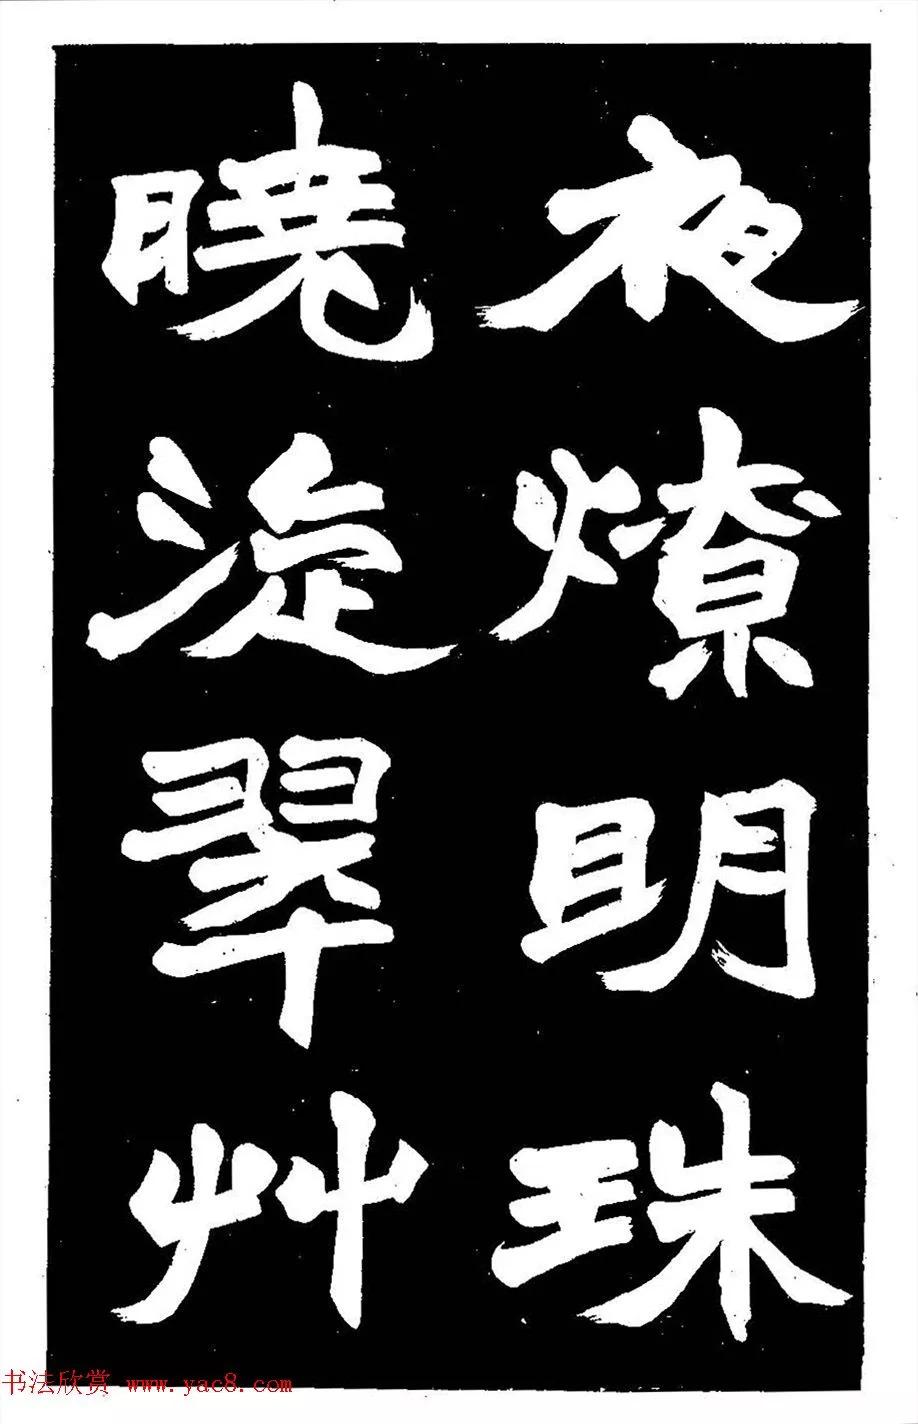 夜燎明珠
曉淀翠艸
书法欣赏 www.yac8.com